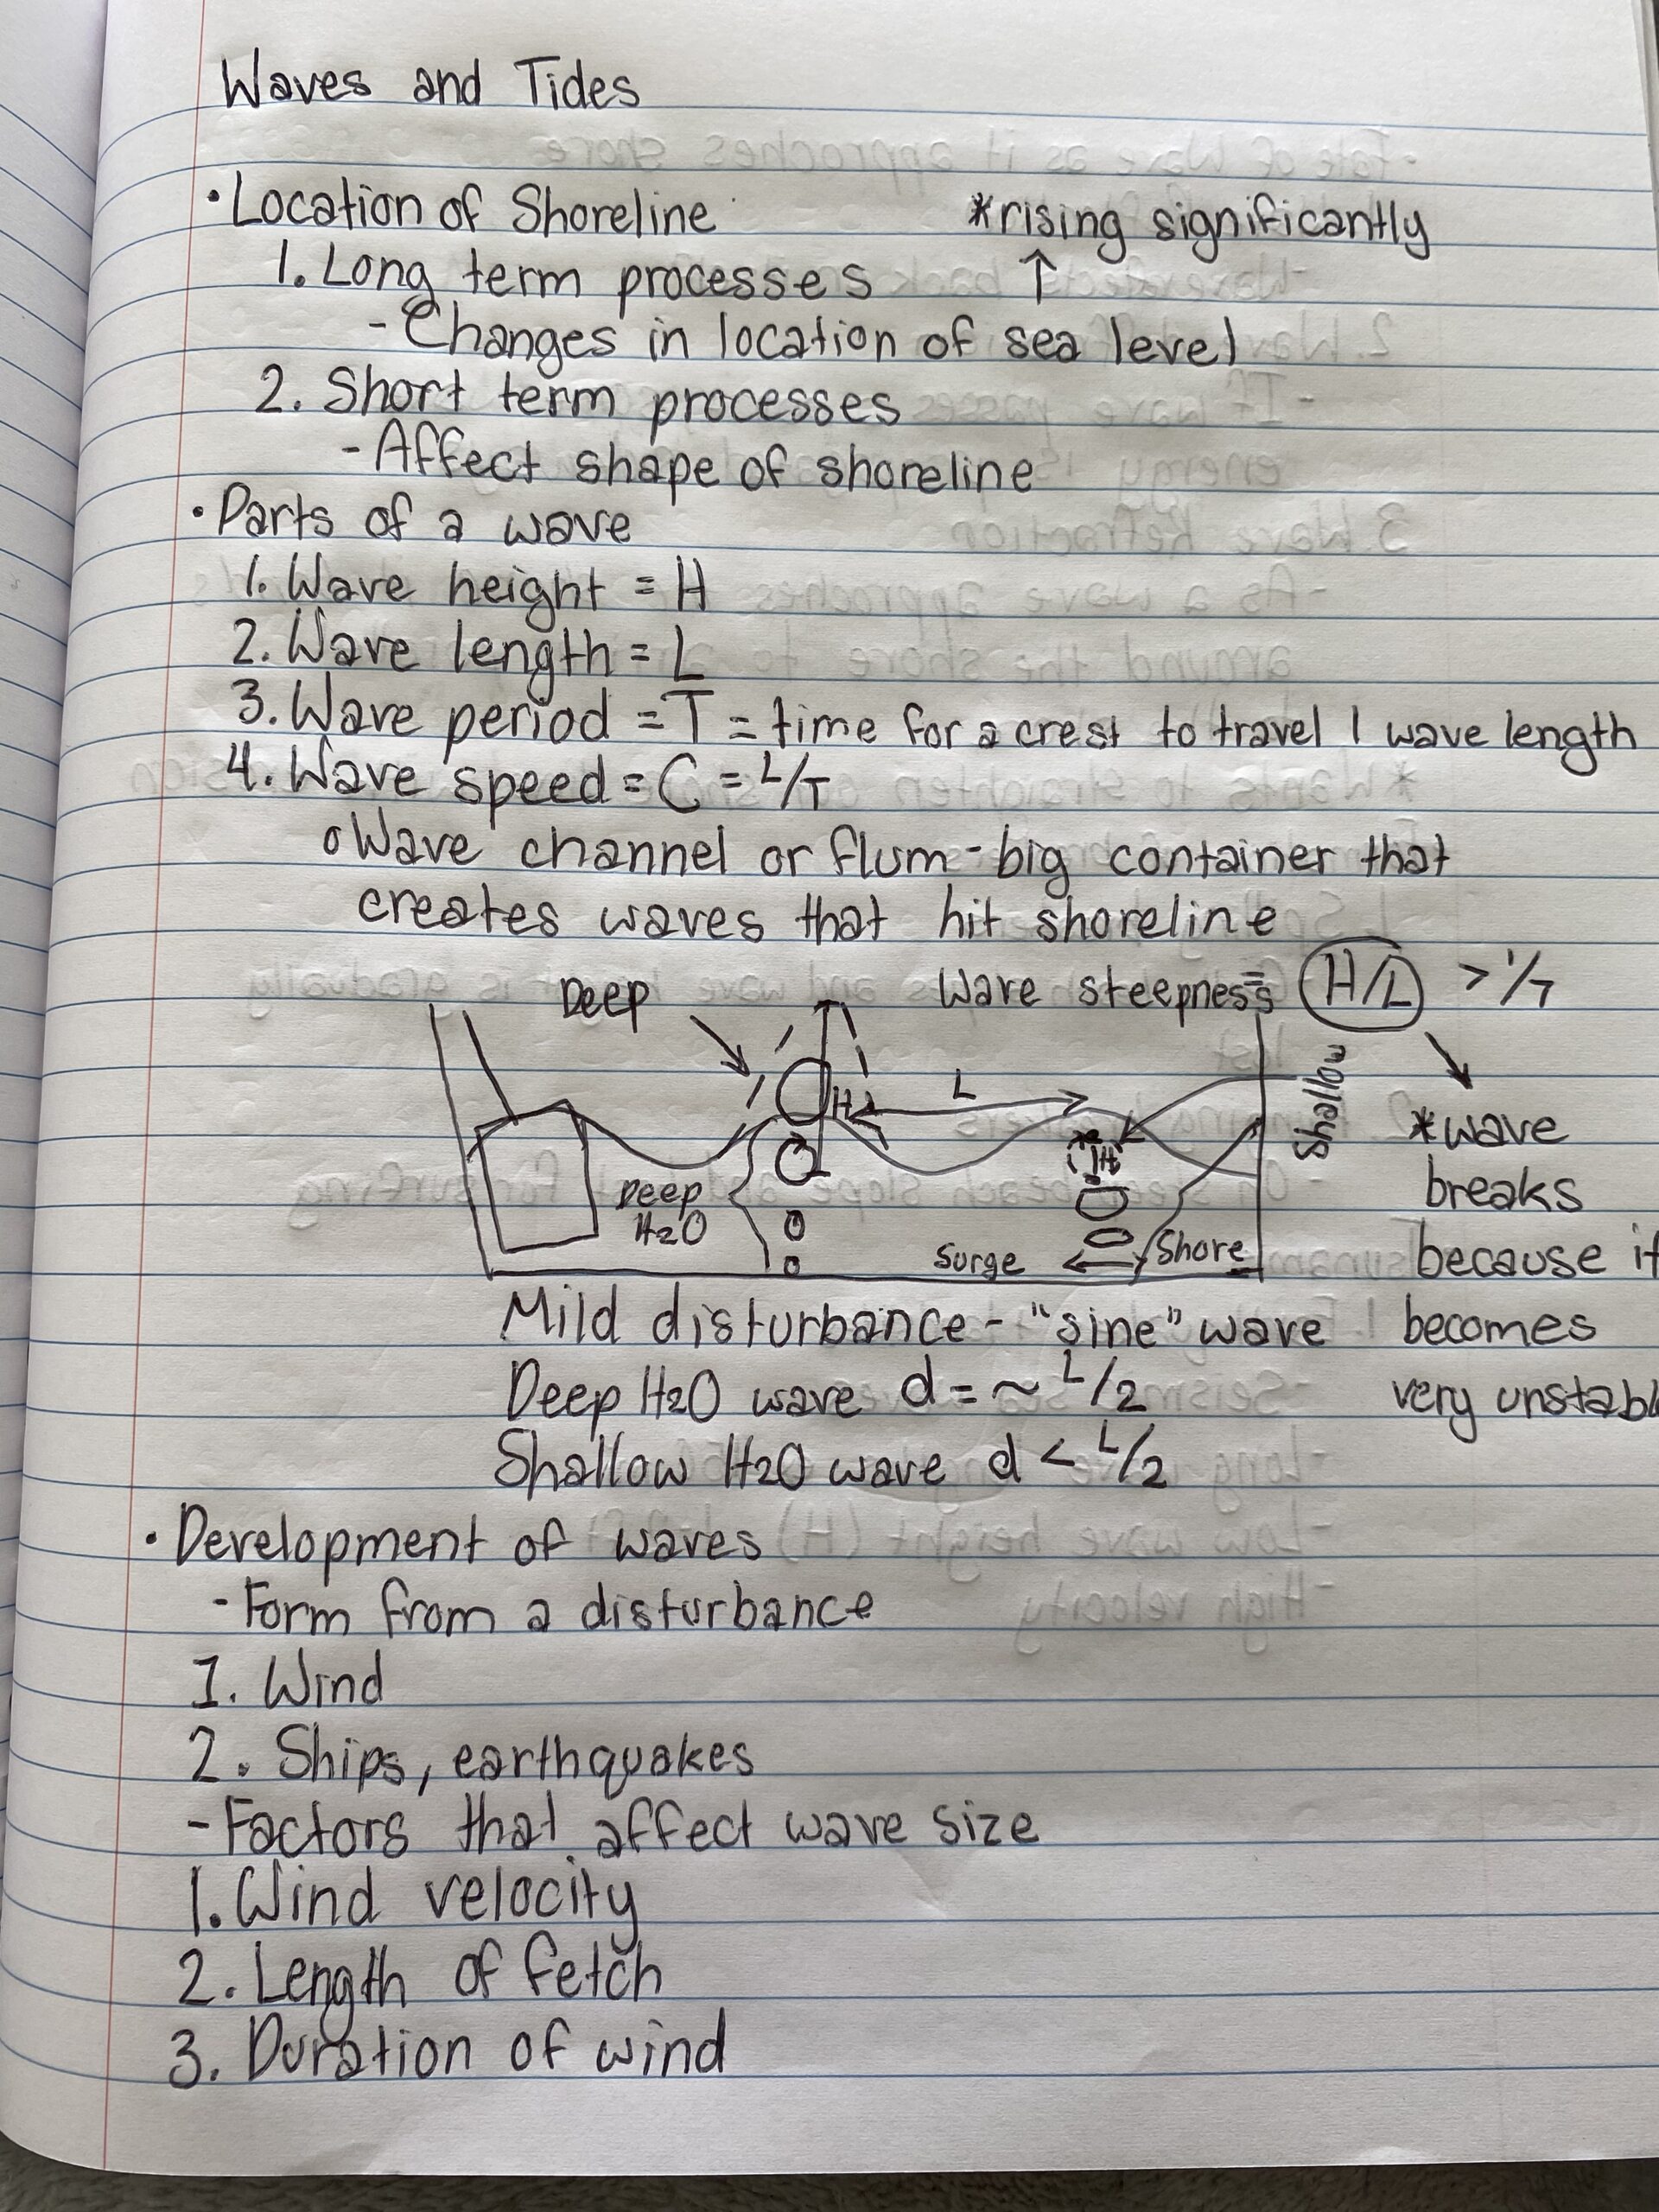 Waves and Tides
• Location of Shoreline *rising significantly
1. Long term processes ↑
- Changes in location of sea level
2. Short term processes
- Affect shape of shoreline
• Parts of a wave
1. Wave height = H
2. Wave length = L
3. Wave period = T = time for a crest to travel 1 wave length
4. Wave speed = C = L/T
o Wave channel or flum - big container that
creates waves that hit shoreline
Deep
Wave steepness = H/L > 1/7
H
L
Shallow
H
Deep
H2O
Surge
Shore
*wave
breaks
because it
becomes
very unstabl
Mild disturbance - "sine" wave
Deep H2O wave d = ~ L/2
Shallow H2O wave d < L/2
• Development of waves
- Form from a disturbance
1. Wind
2. Ships, earthquakes
- Factors that affect wave size
1. Wind velocity
2. Length of fetch
3. Duration of wind